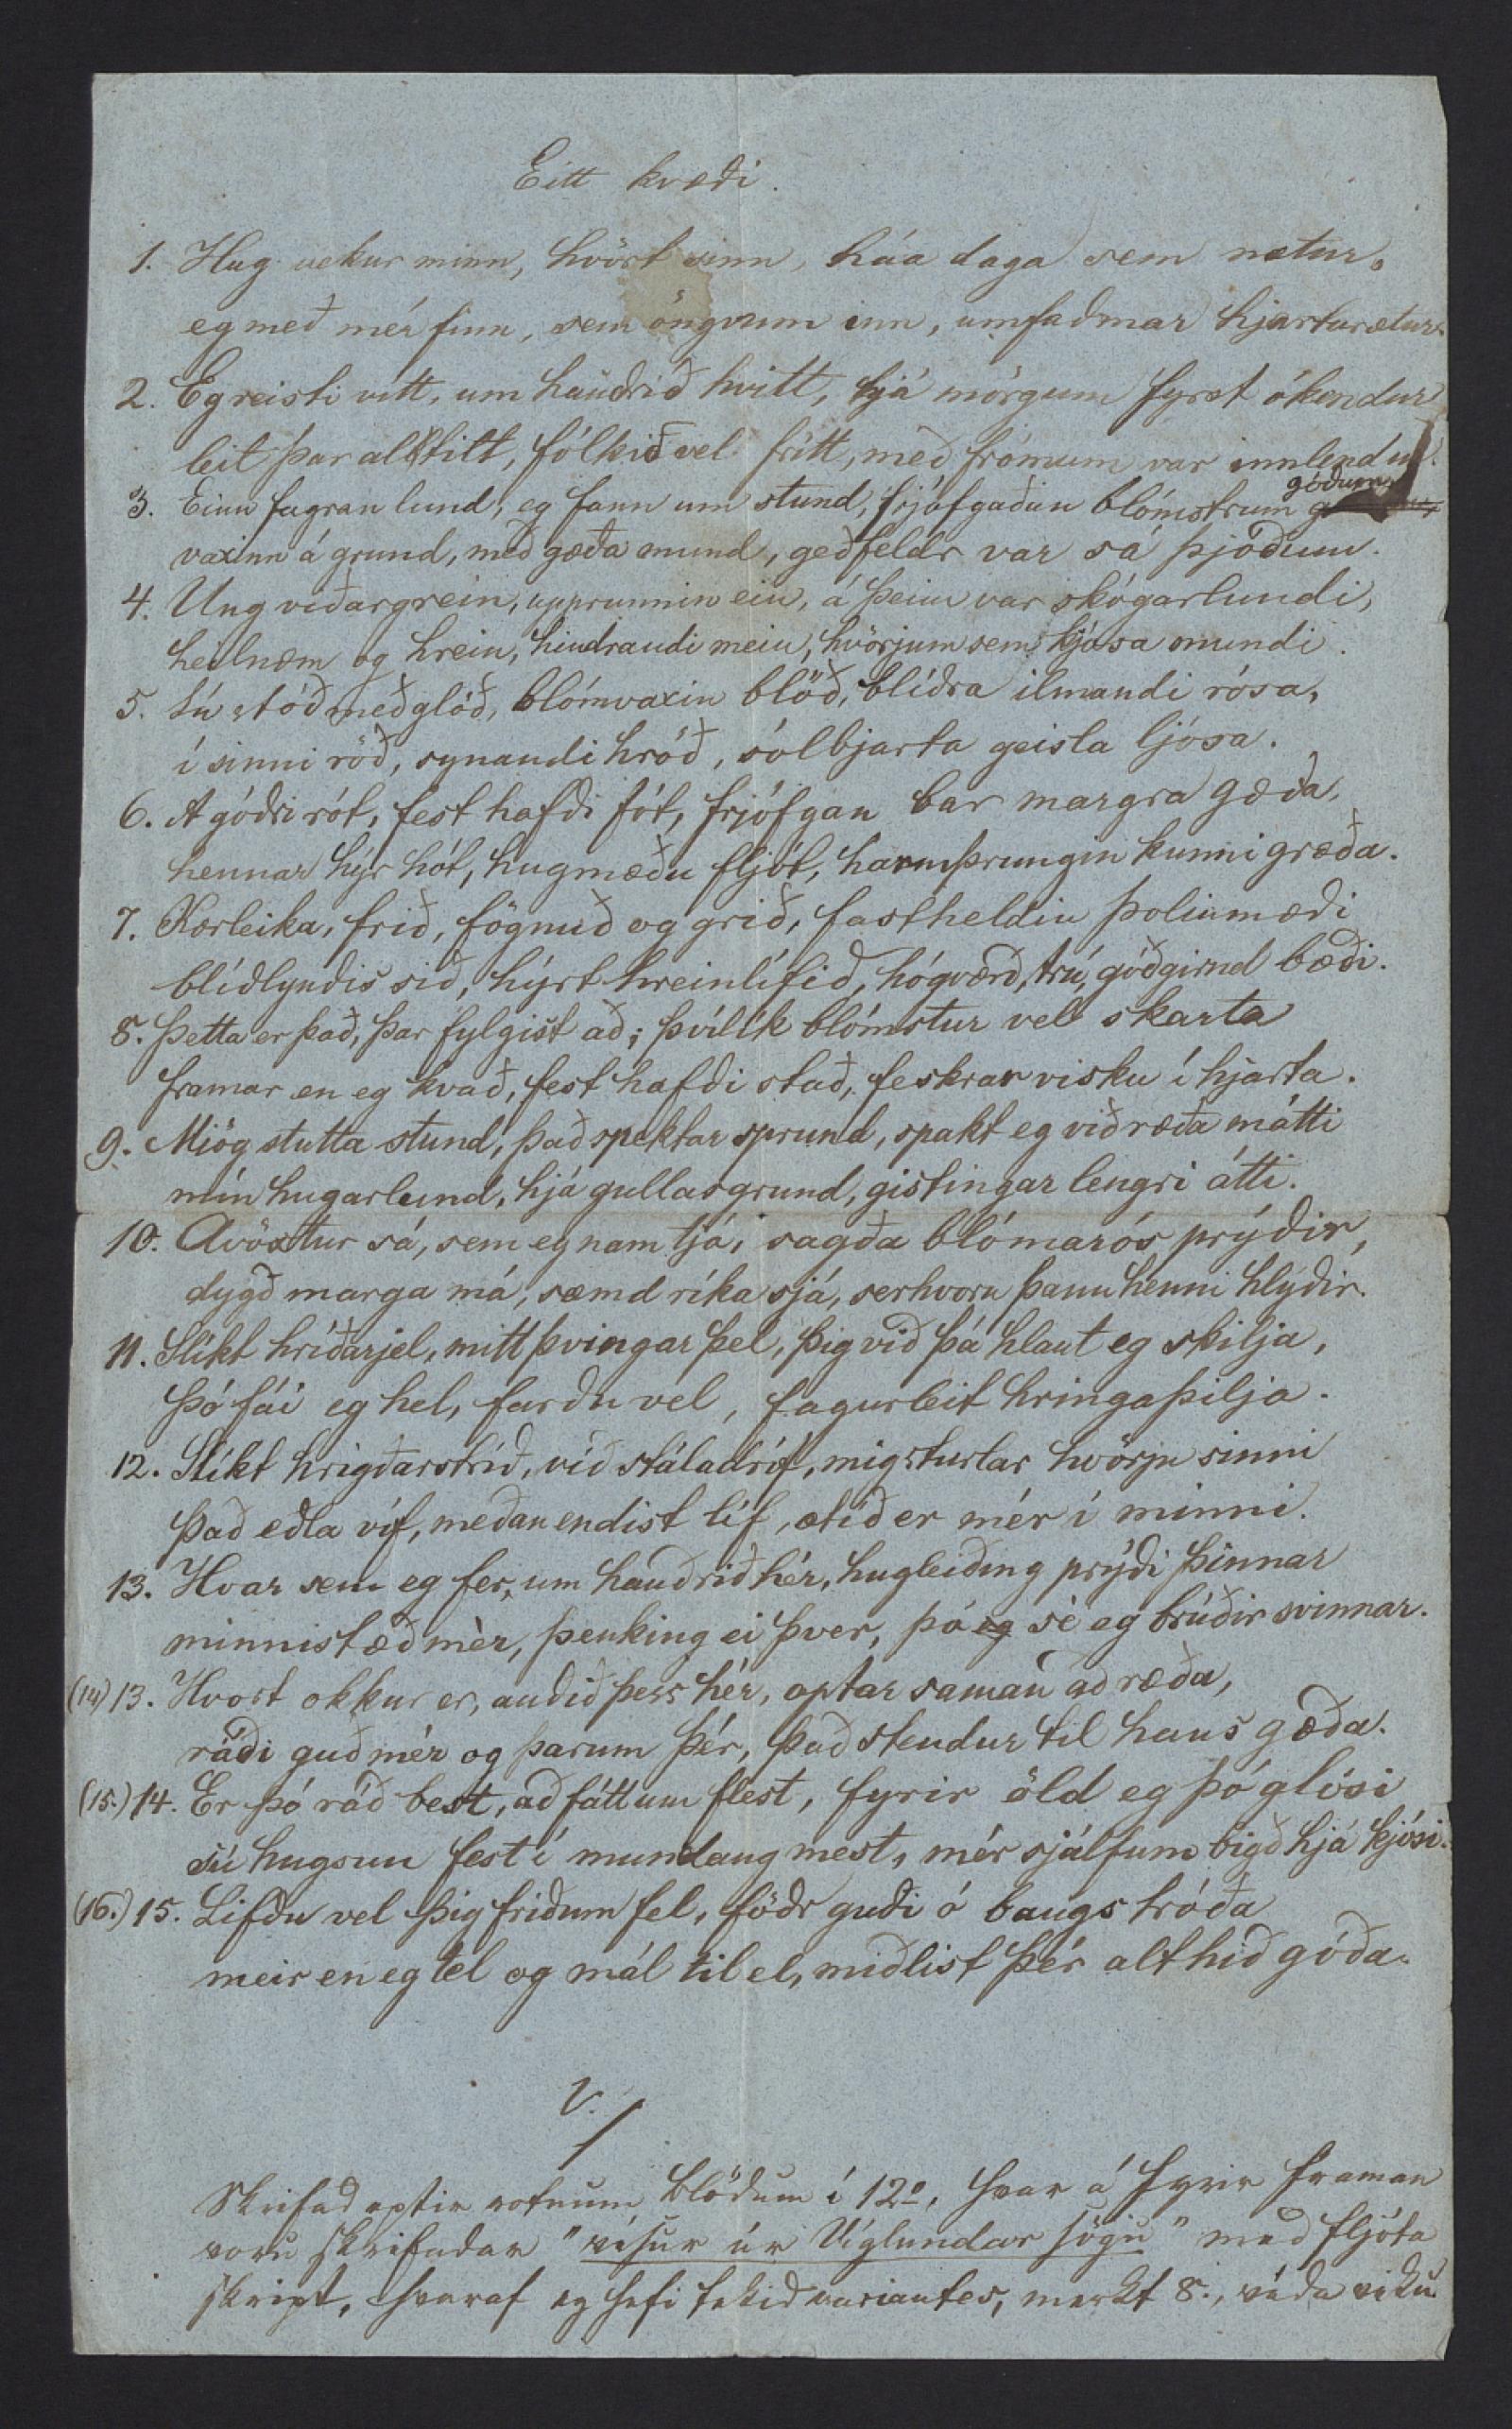 Eitt kvæði.
1. Hug vekur minn, hvört sinn, háa daga sem nætur,
eg með mér finn, sem öngvum inn, umfaðmar hjartarætur.
2. Eg reisti vítt, um hauðrið hvitt, hjá mörgum fyrst ókendur
leit þar alltitt, fólkið vel fritt, með frómum var innlendur.
3. Einn fagran lund, eg fann um stund, frjófgaðan blómstrum góðum,
vaxinn á grund, með gæða mund, geðfeldr var sá þjóðum.
4. Ung viðargrein, upprunnin ein, á þeim var skógarlundi,
heilnæm og hrein, hindrandi mein, hvörjum sem kjósa mundi.
5. Sú stóð með glóð, blómvaxin blöð, blíðra ilmandi rósa,
í sinni röð, synandi hróð, sólbjarta geisla ljósa.
6. A góðri rót, fest hafði fót, frjófgan bar margra gæða,
hennar hýr hót, hugmæðu fljót, harmþrungin kunni græða.
7. Kærleika, frið, fögnuð og grið, fastheldin þolinmæði
blíðlyndis sið, hýrt hreinlífið, hógværð, trú, góðgirnd bæði.
8. Þetta er það, þar fylgist að; þvílík blómstur vel skarta
framar en eg kvað, fest hafði stað, feskrar visku í hjarta.
9. Miög stutta stund, það spektar sprund, spakt eg við ræða mátti
mín hugarlund, hjá gullasgrund, gistingar lengri átti.
10. Avöxtur sá, sem eg nam tjá, sagða blómarós prýðir,
dygð marga má, sæmd ríka sjá, serhvorn þann henni hlýðir.
11. Slikt hríðarjel, mitt þvingar þel, þig við þá hlaut eg skilja,
þó fái eg hel, farðu vel, fagurleit hringaþilja.
12. Slikt hrigðarstríð, við stáladríf, mig sturlar hvörju sinni
það eðla víf, meðan endist líf, ætíð er mér í minni.
13. Hvar sem eg fer, um hauðrið hér, hugleiðing prýði þinnar
minnist æð mèr, þenking ei þver, þó eg sè eg brúðir svinnar.
(14) 13. Hvort okkur er, auðið þess hér, optar saman að ræða,
ráði guð mér og þarum þér, það stendur til hans gæða.
(15.) 14. Er þó ráð best, að fátt um flest, fyrir öld eg þó glósi
sú hugsun fest í mundang mest, mér sjálfum bigð hjá kjósi.
(16.) 15. Lifðu vel þig friðum fel, föðr guði ó baugs tróða
meir en eg tel og mál til el, miðlist þér alt hið góða.
V.
Skrifað eptir rotnum blöðum í 12º, hvar á fyrir framan
voru skrifadar "vísur úr Víglundar sögu" með fljóta
skript, hvaraf eg hefi tekið variantes, merkt 8.,